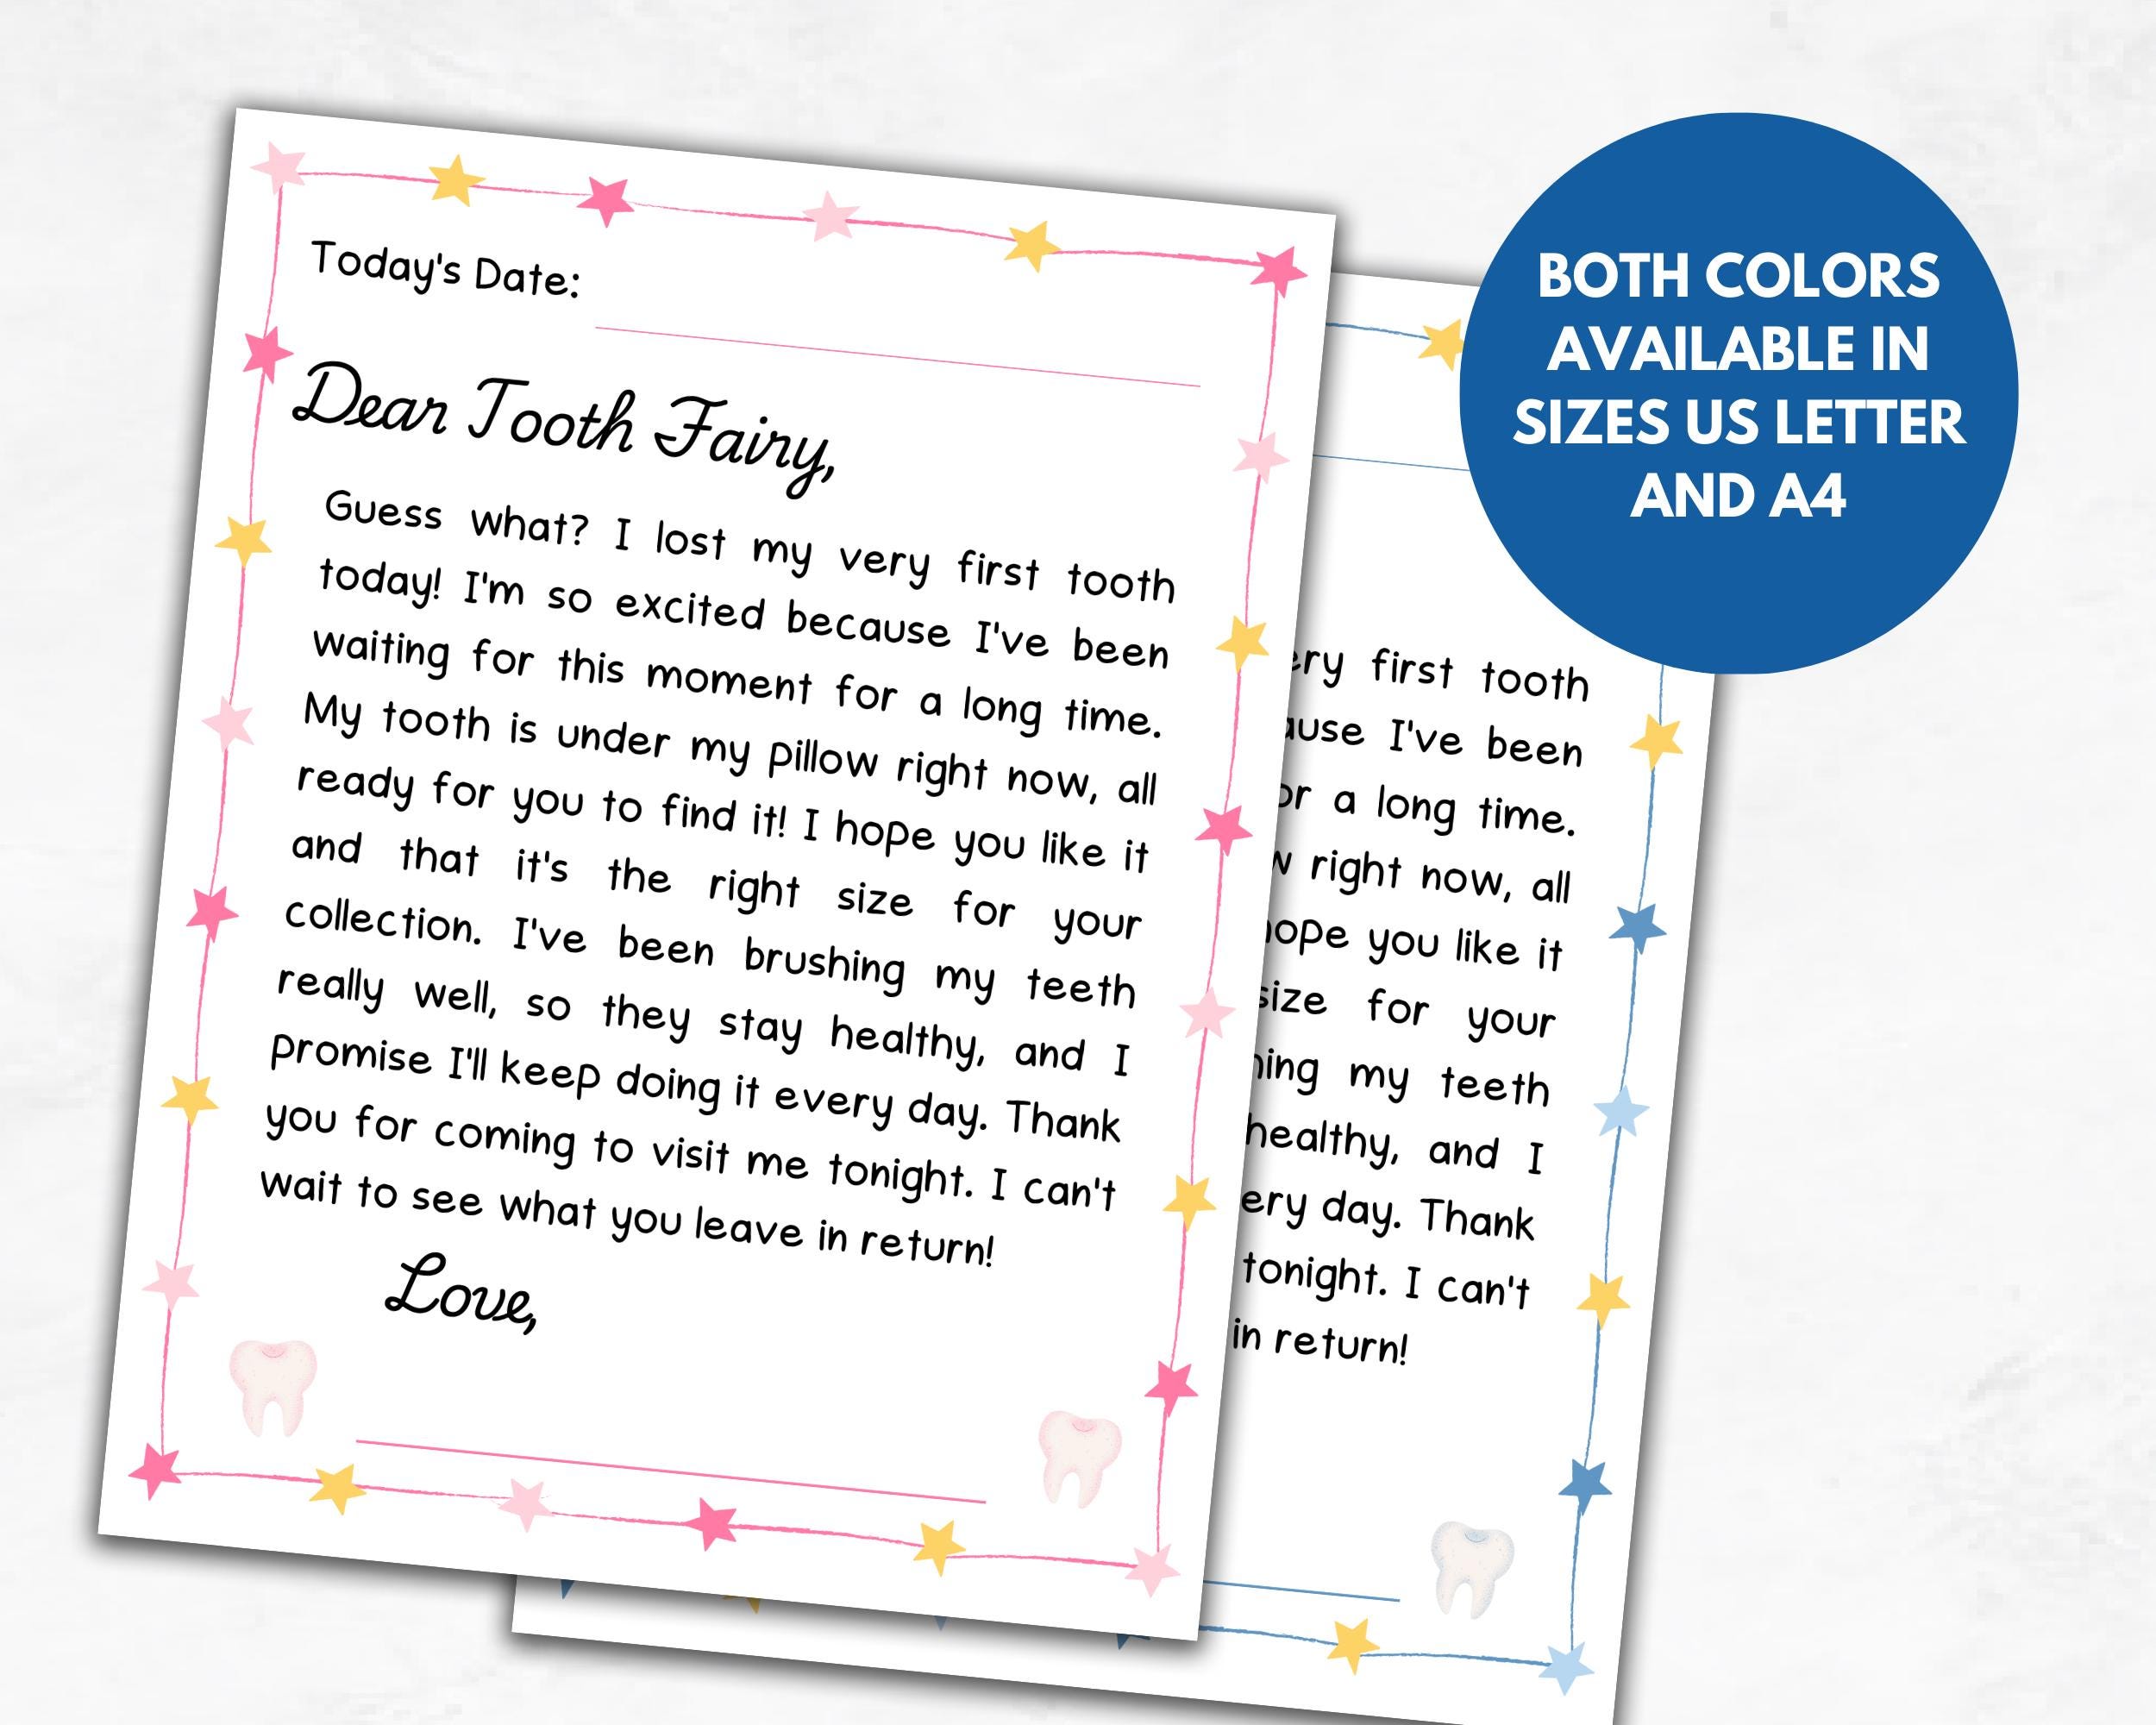 Today's Date:
Dear Tooth Fairy,
Guess what? I lost my very first tooth
today! I'm so excited because I've been
waiting for this moment for a long time.
My tooth is under my pillow right now, all
ready for you to find it! I hope you like it
and that it's the right size for your
collection. I've been brushing my teeth
really well, so they stay healthy, and I
promise I'll keep doing it every day. Thank
you for coming to visit me tonight. I can't
wait to see what you leave in return!
Love,
first tooth
I've been
a long time.
right now, all
you like it
size for your
my teeth
healthy, and I
day. Thank
tonight. I can't
in return!
BOTH COLORS
AVAILABLE IN
SIZES US LETTER
AND A4